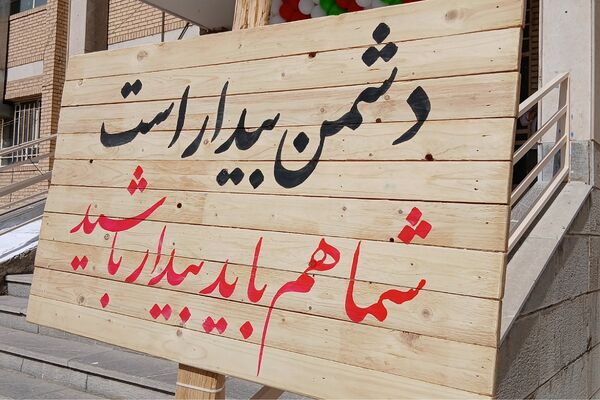 دشمن بیدار است
شما هم باید بیدار باشید